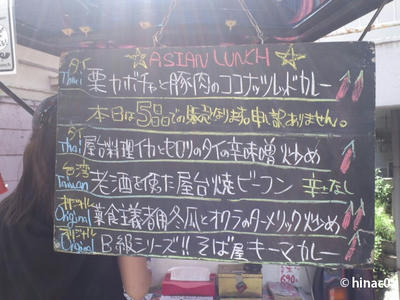 ☆ASIAN LUNCH☆
タイ
Thai 栗カボチャと豚肉のココナッツレッドカレー
本日は5品目での販売となります。申し訳ありません。
タイ
Thai 屋台料理イカとセロリのタイの辛味噌炒め
台湾
Taiwan 老酒を使った屋台焼ビーフン 辛さなし
オリジナル
Original 菜食主義者用冬瓜とオクラのターメリック炒め
オリジナル
Original B級シリーズ!! そば屋キーマカレー
690
© hinac0